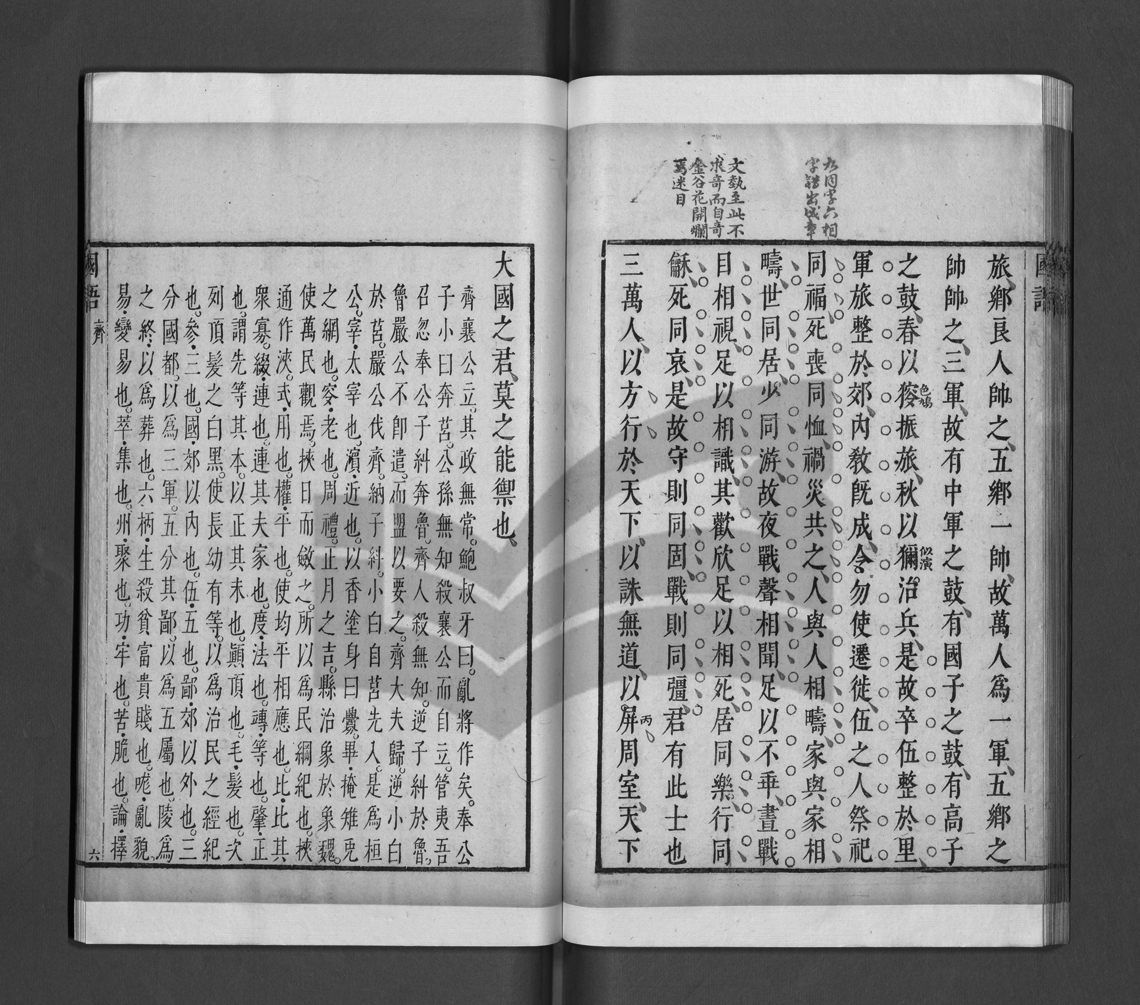 國語
九同字六相
字錯出成章
文勢至此不
求奇而自奇
金谷花開爛
焉迷目
旅、鄉良人帥之、五鄉一帥、故萬人爲一軍、五鄉之
帥帥之、三軍、故有中軍之鼓、有國子之鼓、有高子
之鼓、春以䅹振旅、秋以獮治兵、是故卒伍整於里、
軍旅整於郊、內教旣成、令勿使遷徙、伍之人祭祀
同福、死喪同恤、禍災共之、人與人相疇、家與家相
疇、世同居、少同游、故夜戰聲相聞、足以不乖、晝戰
目相視、足以相識、其歡欣足以相死、居同樂、行同
龢、死同哀、是故守則同固、戰則同彊、君有此士也
三萬人、以方行於天下、以誅無道、以屏周室、天下
大國之君、莫之能禦也、
齊襄公立。其政無常。鮑叔牙曰。亂將作矣。奉公
子小白奔莒。公孫無知殺襄公而自立。管夷吾
召忽奉公子糾奔魯。齊人殺無知。逆子糾於魯。
魯嚴公不卽遣。而盟以要之。齊大夫歸。逆小白
於莒。嚴公伐齊。納子糾。小白自莒先入。是爲桓
公。宰·太宰也。濱·近也。以香塗身曰釁。畢·掩雉兎
之網也。容·老也。周禮。正月之吉。縣治象於象魏。
使萬民觀焉。挾日而斂之。所以爲民綱紀也。挾
通作浹。式·用也。權·平也。使均平相應也。比·比其
衆寡。綴·連也。連其夫家也。度·法也。竱·等也。肇·正
也。謂先等其本。以正其末也。顚·頂也。毛·髮也。次
列頂髮之白黑。使長幼有等。以爲治民之經紀
也。參·三也。國·郊以內也。伍·五也。鄙·郊以外也。三
分國都。以爲三軍。五分其鄙。以爲五屬也。陵爲
之終。以爲葬也。六柄·生殺貧富貴賤也。哤·亂貌。
易·變易也。萃·集也。州·聚也。功·牢也。苦·脆也。論·擇
國語
齊
六